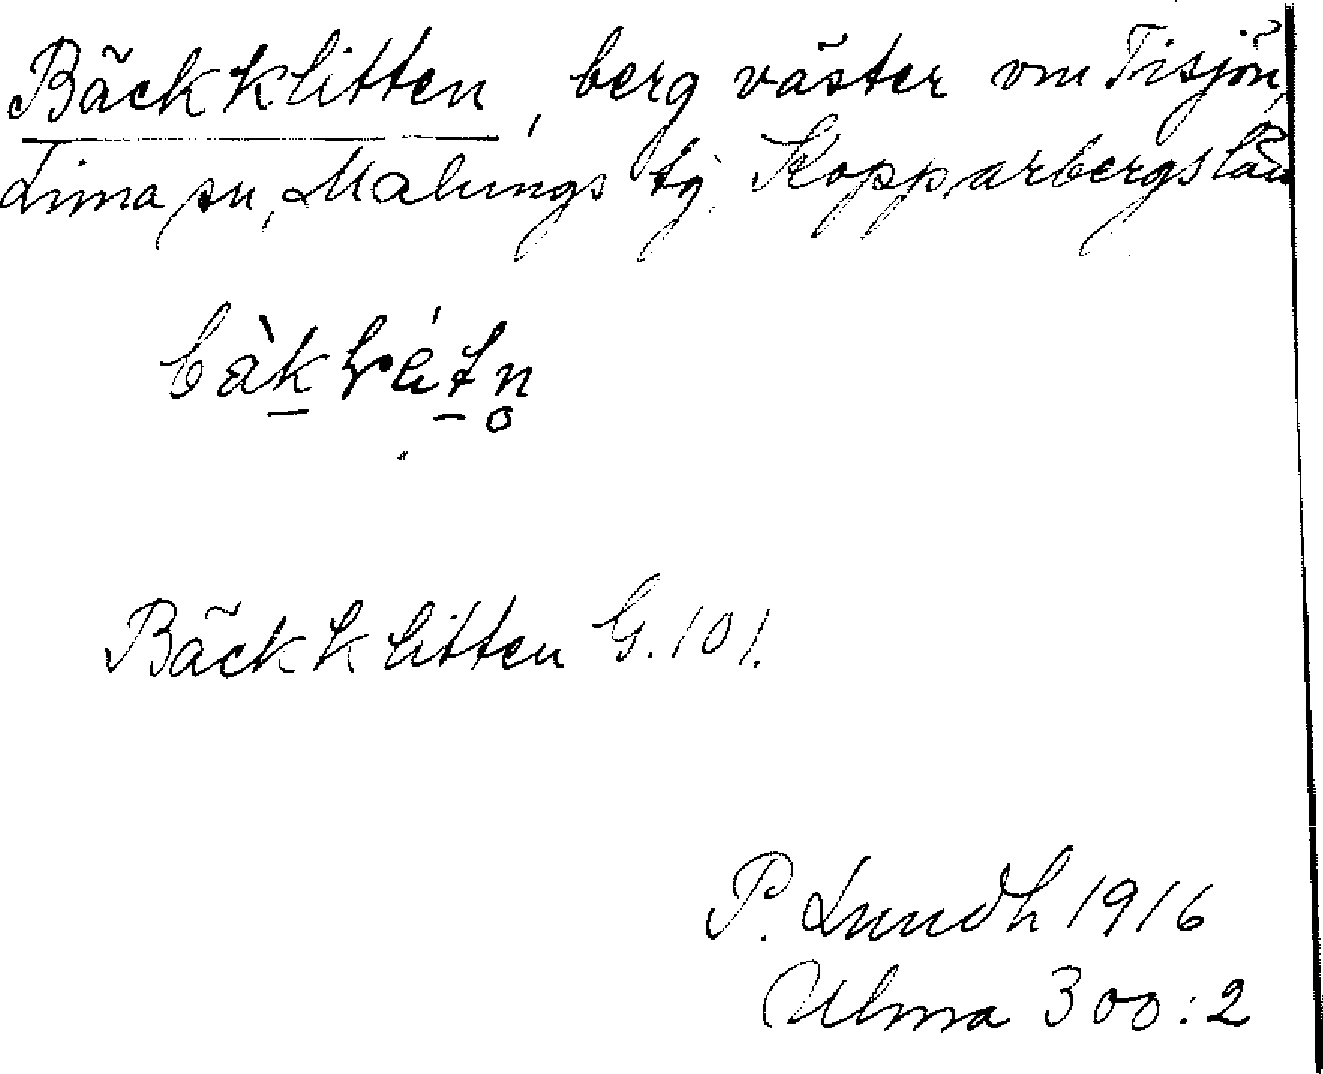 Bäckklitten, berg väster om Tisjön,
Lima sn, Malungs tg. Kopparbergs län
Bäckklitten G. 101.
P. Lundh 1916
Ulma 300:2